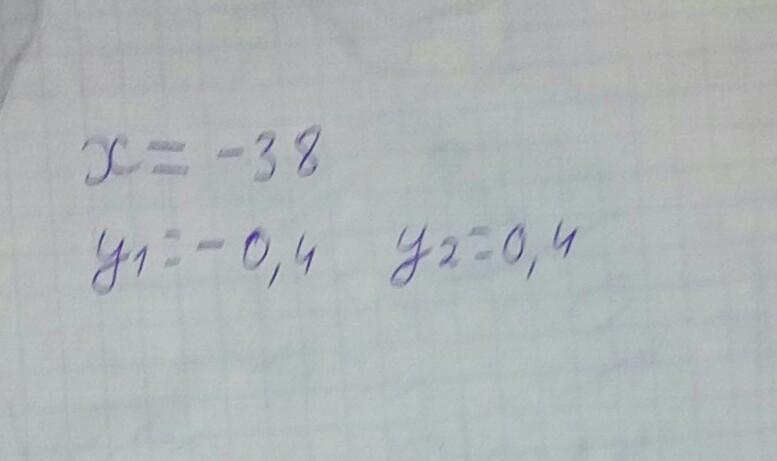 x = -38
y1 = -0,4 y2 = 0,4